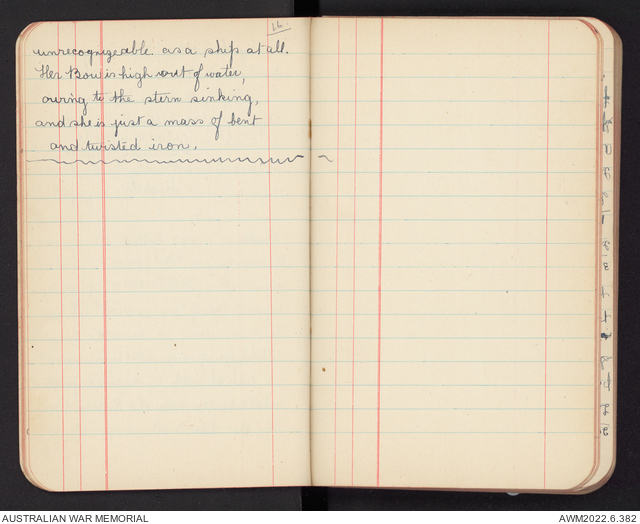 16.
unrecognizeable as a ship at all.
Her Bow is high out of water,
owing to the stern sinking,
and she is just a mass of bent
and twisted iron.
AUSTRALIAN WAR MEMORIAL
AWM2022.6.382